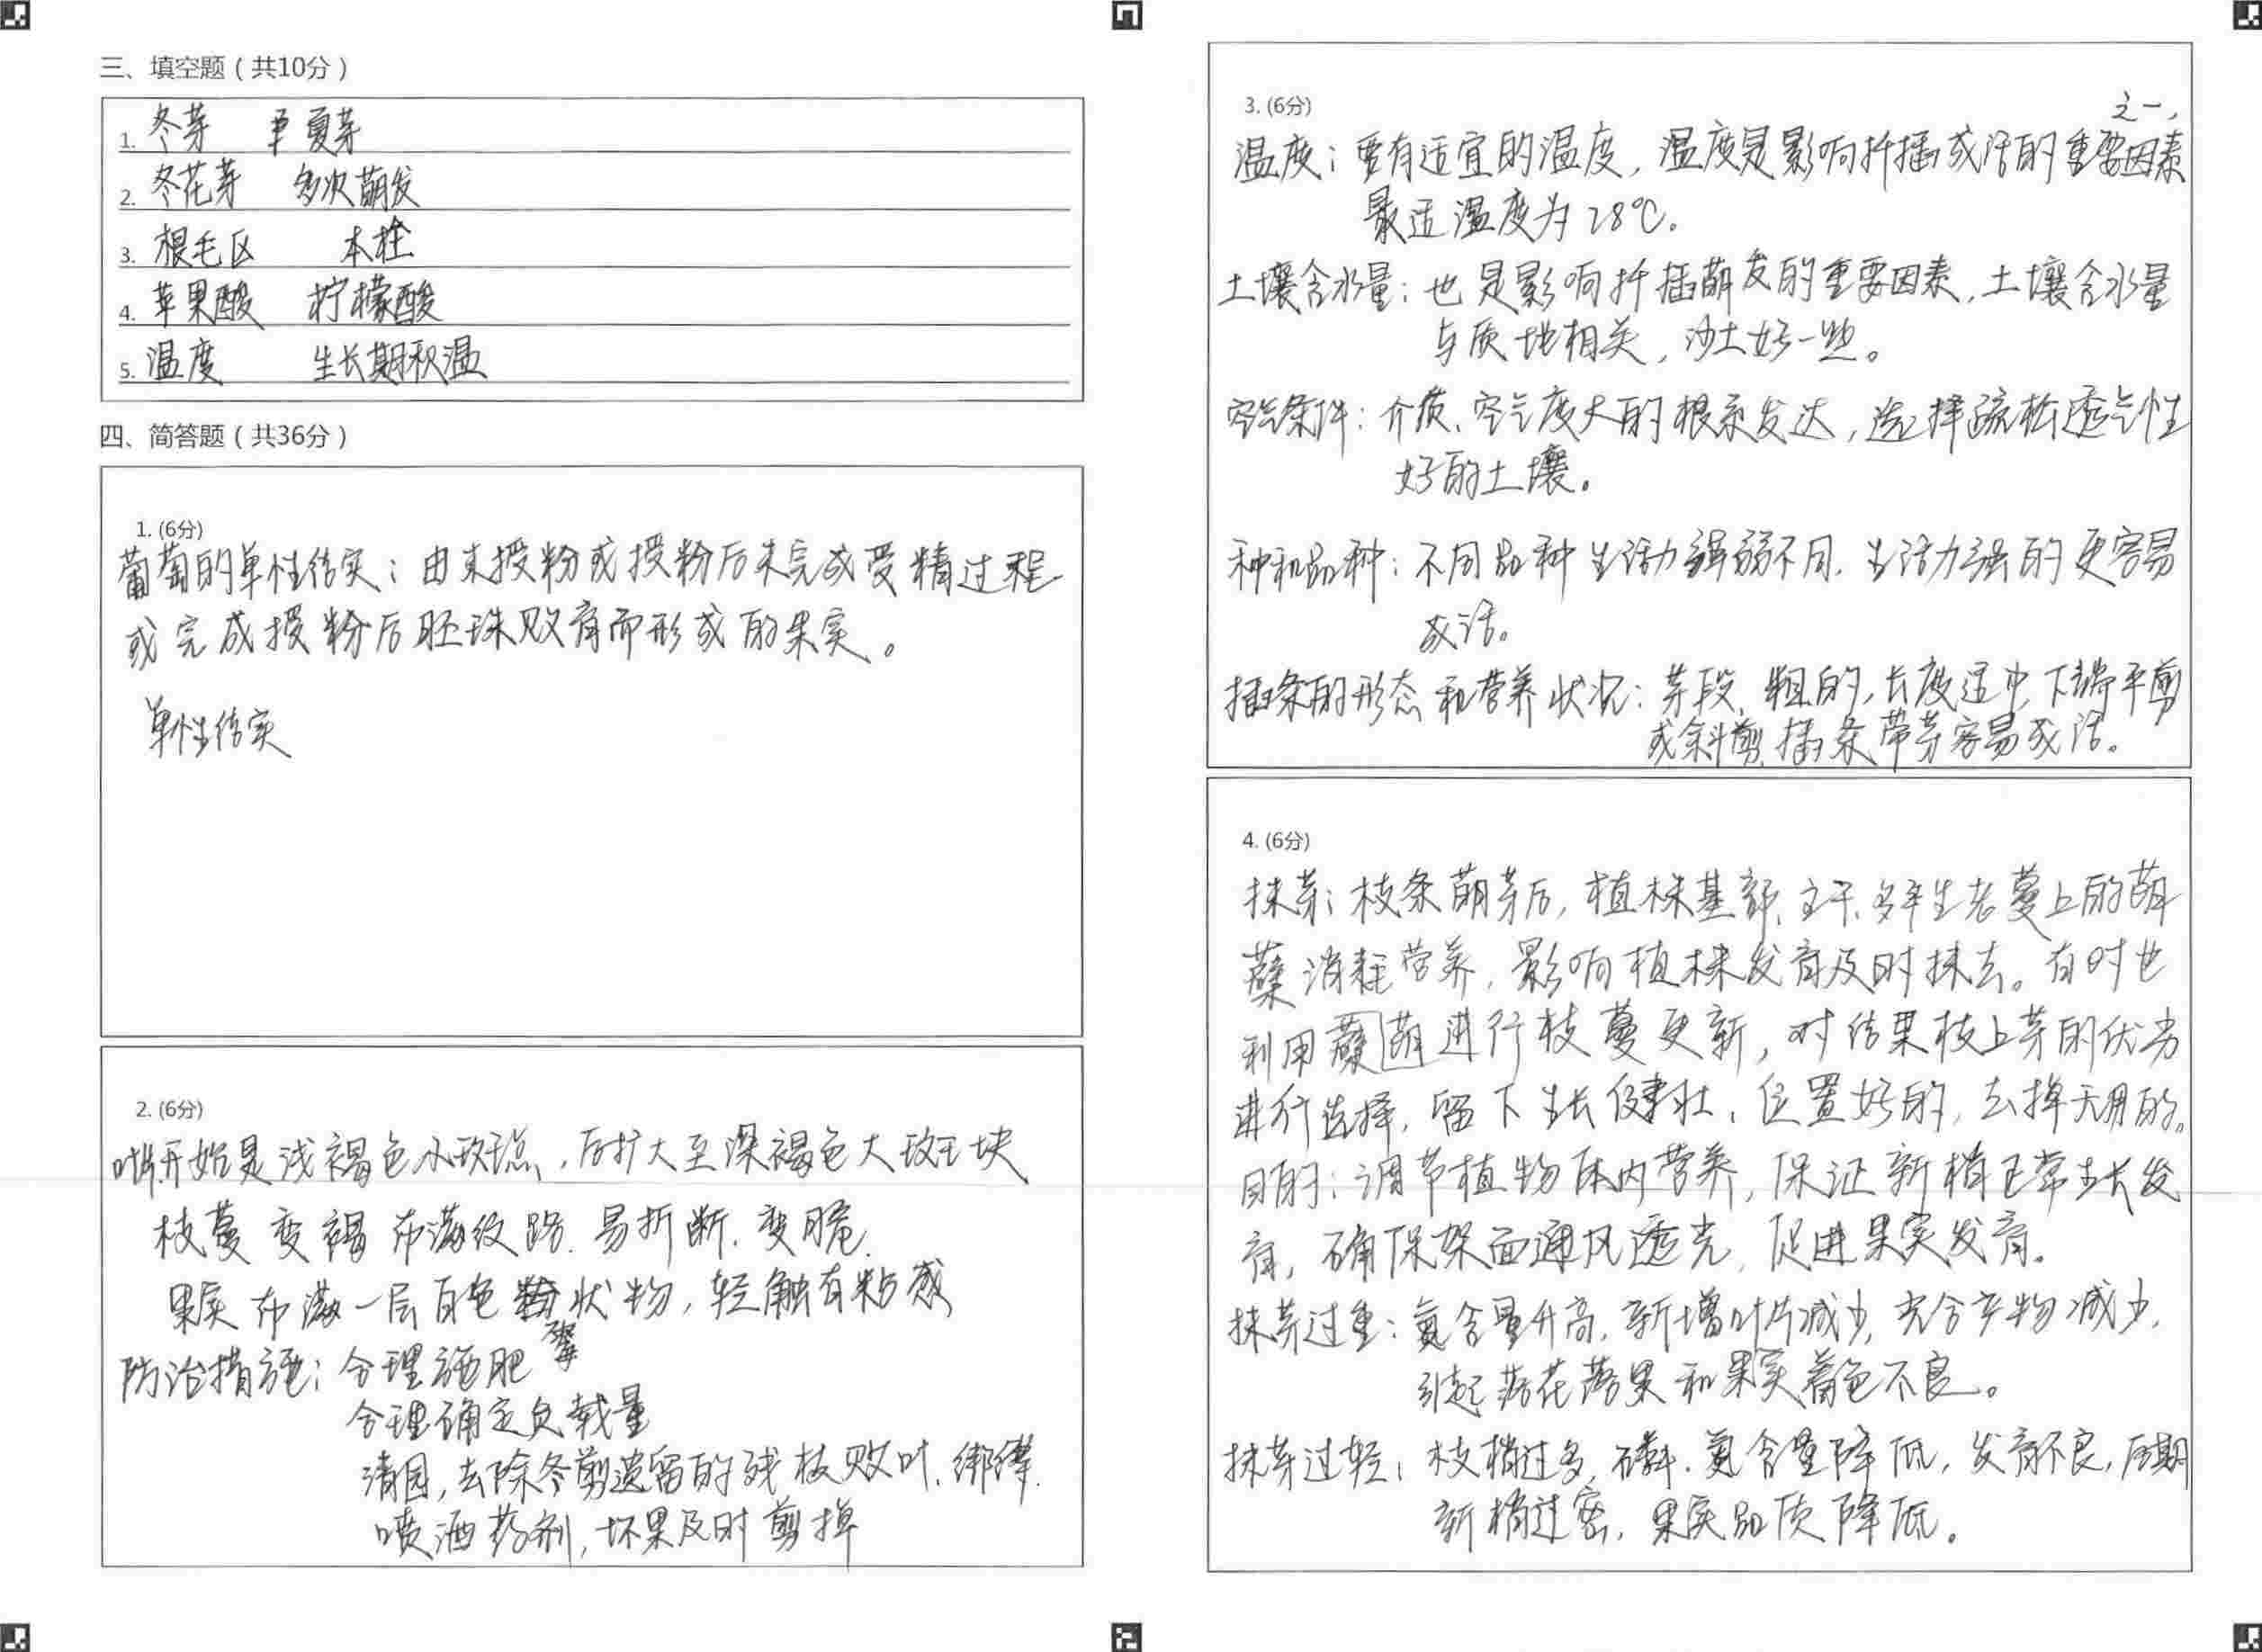 三、填空题（共10分）
1. 冬芽 夏芽
2. 冬花芽 多次萌发
3. 根毛区 木栓
4. 苹果酸 柠檬酸
5. 温度 生长期积温
四、简答题（共36分）
1. (6分)
葡萄的单性结实：由未授粉或授粉后未完成受精过程
或完成授粉后胚珠败育而形成的果实。
单性结实
2. (6分)
叶片开始是浅褐色小斑点，后扩大至深褐色大斑块
枝蔓变褐 布满纹路、易折断、变脆.
果实布满一层白色粉状物，轻触有粘感
防治措施：合理施肥
合理确定负载量
清园，去除冬剪遗留的残枝败叶、绑缚.
喷洒药剂，坏果及时剪掉
3. (6分)
之一，
温度：要有适宜的温度，温度是影响扦插成活的重要因素
最适温度为28℃。
土壤含水量：也是影响扦插萌发的重要因素，土壤含水量
与质地相关，沙土好一些。
空气条件：介质、空气度大的根系发达，选择疏松透气性
好的土壤。
种和品种：不同品种生活力强弱不同，生活力强的更容易
成活。
插条的形态和营养状况：芽段、粗的，长度适中，下端平剪
或斜剪，插条带芽容易成活。
4. (6分)
抹芽：枝条萌芽后，植株基部、主干、多年生老蔓上的萌
蘖消耗营养，影响植株发育及时抹去。有时也
利用蘖萌进行枝蔓更新，对结果枝上芽的优劣
进行选择，留下生长健壮、位置好的，去掉无用的。
目的：调节植物体内营养，保证新梢正常生长发
育，确保架面通风透光，促进果实发育。
抹芽过重：氮含量升高，新增叶片减少，光合产物减少，
引起落花落果和果实着色不良。
抹芽过轻：枝梢过多，磷、氮含量降低，发育不良，后期
新梢过密，果实品质降低。